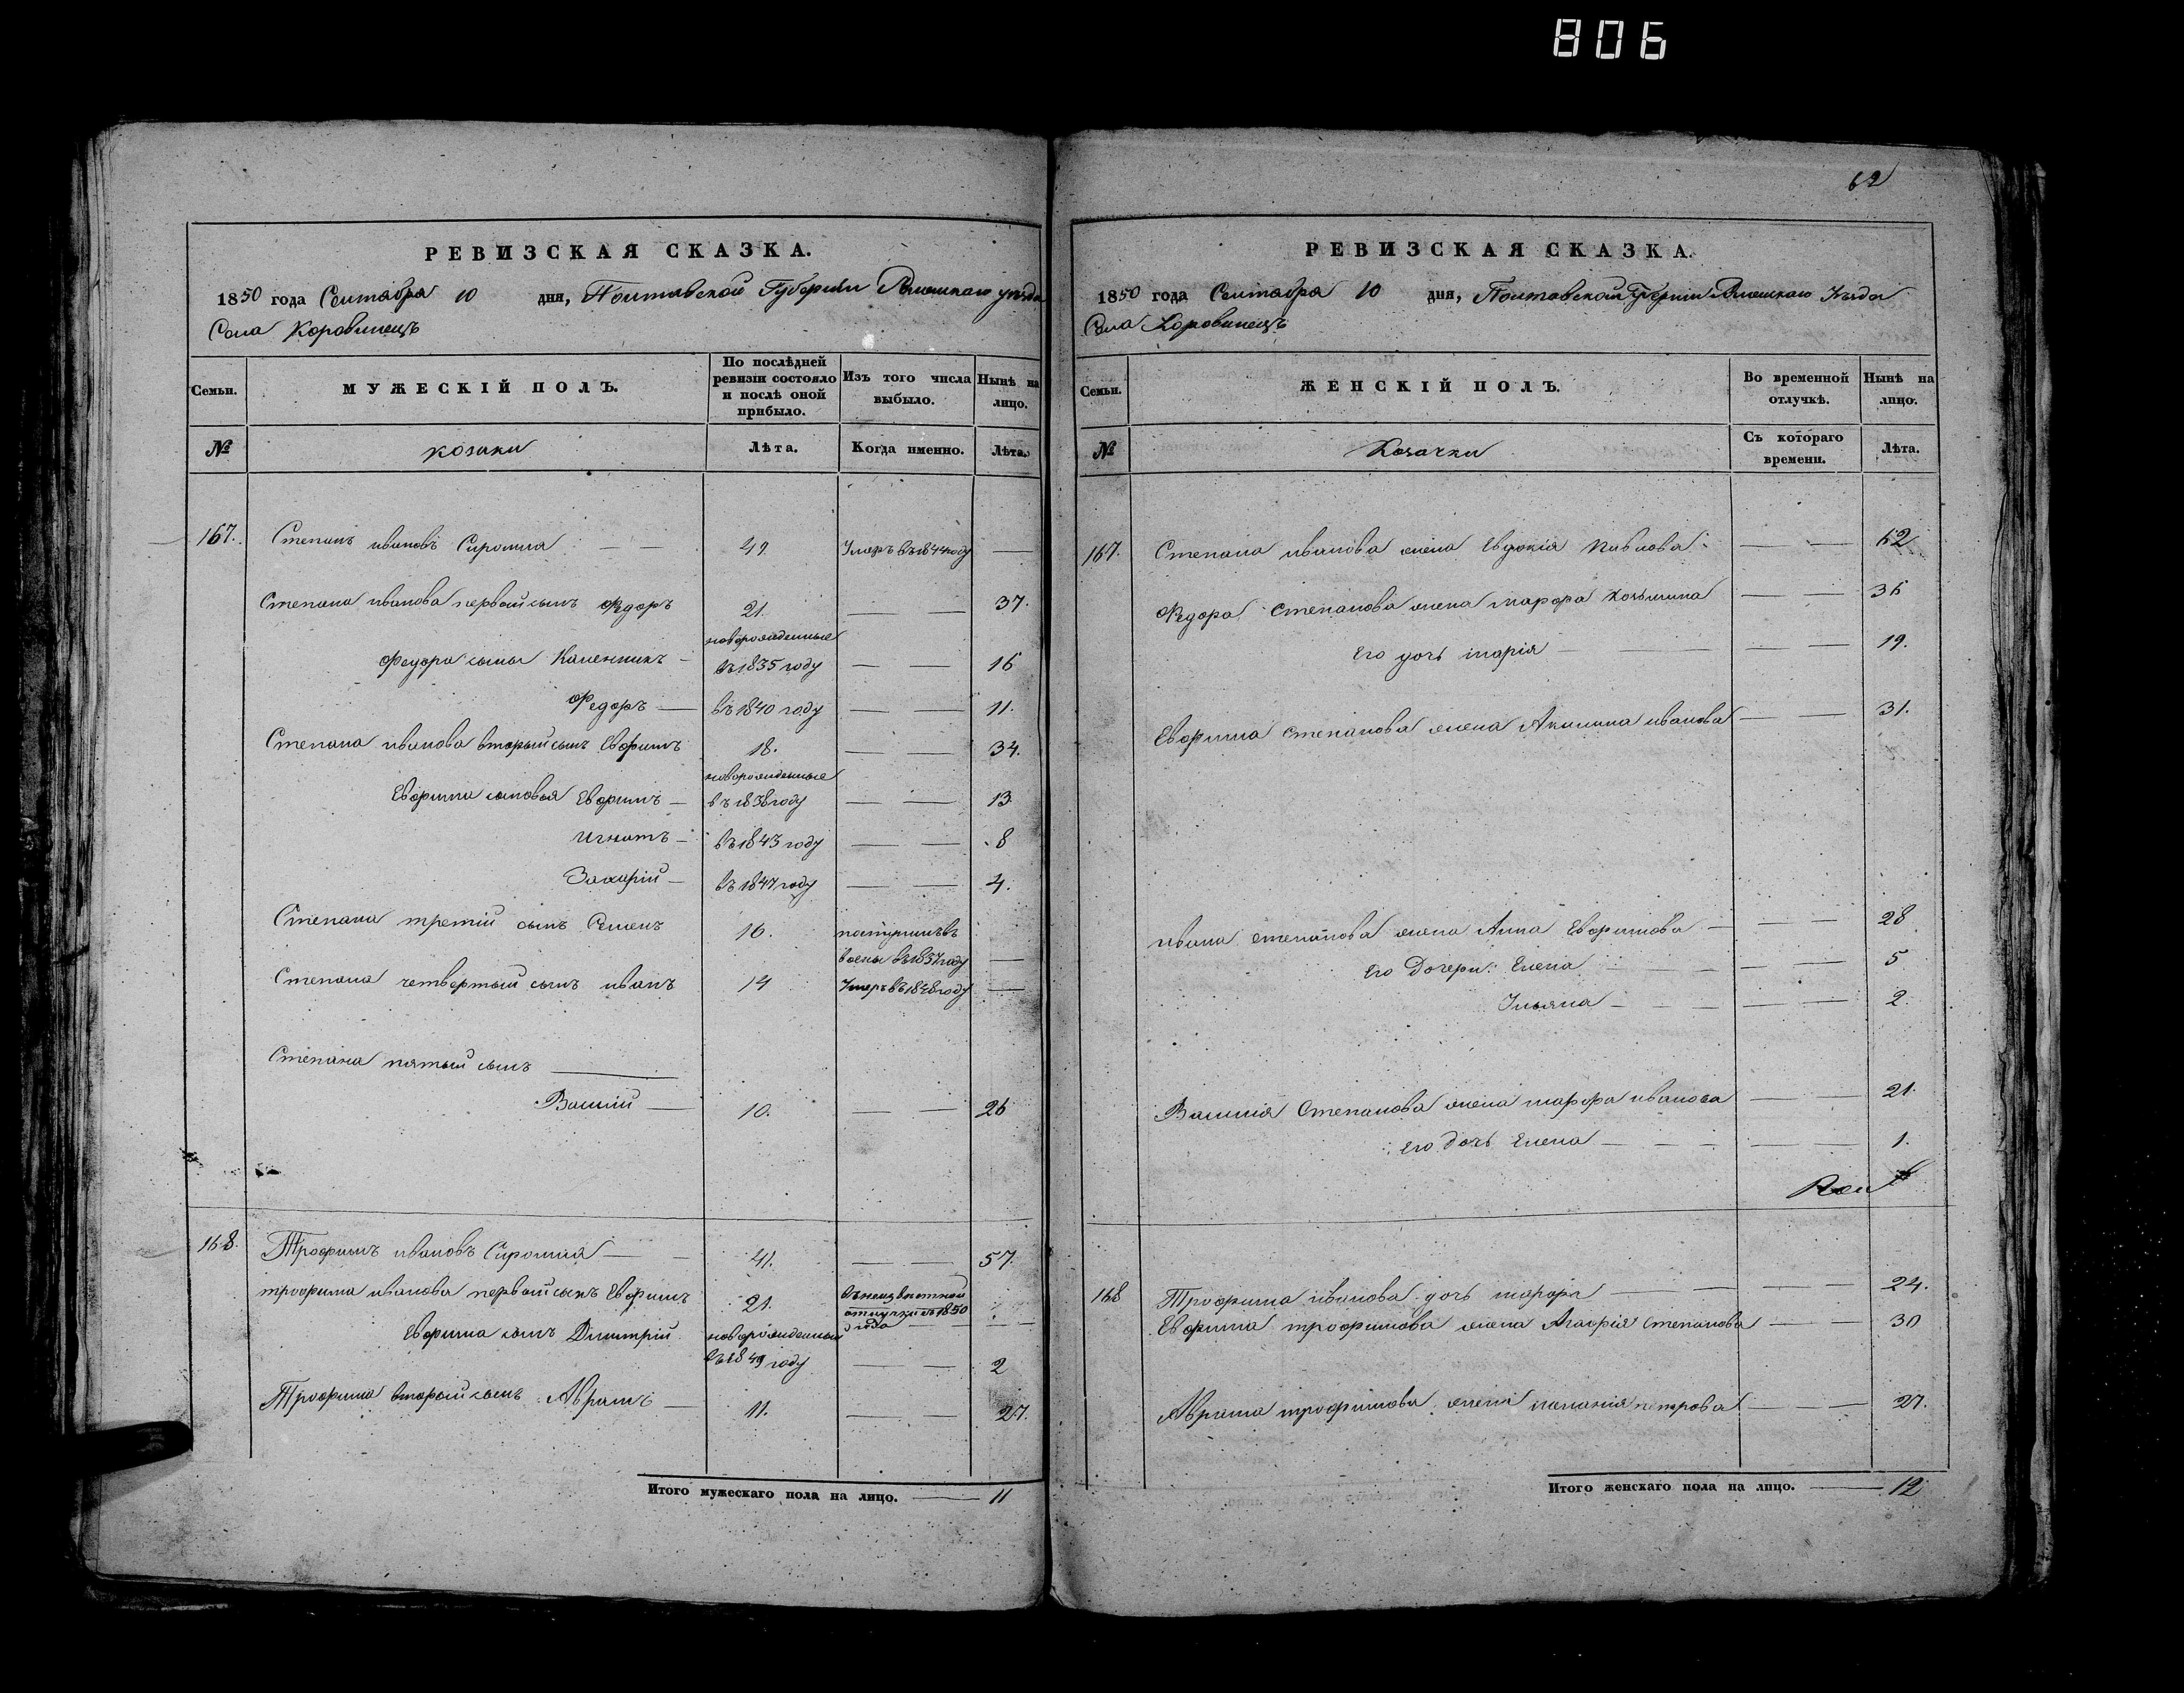 806
РЕВИЗСКАЯ СКАЗКА.
1850 года Сентября 10 дня, Полтавской Губернии Роменскаго уезда
Села Коровинецъ
Семьи. МУЖЕСКІЙ ПОЛЪ. По послѣдней ревизіи состояло и послѣ оной прибыло. Изъ того числа выбыло. Нынѣ на лицо.
№ козаки Лѣта. Когда именно. Лѣта.
167. Степанъ ивановъ Сиромля 49. Умеръ въ 1844 году —
Степана иванова первый сынъ Федоръ 21. — 37.
новорожденные
Федора сыны въ 1835 году — 16
Федоръ — въ 1840 году — 11.
Степана иванова вторый сынъ Евфимъ 18. — 34.
новорожденные
Евфима сыновья Евфимъ — въ 1838 году — 13.
Игнатъ — въ 1843 году — 8
Захарій — въ 1847 году — 4.
Степана третій сынъ Семенъ 16. поступилъ въ
въ 1837 году —
Степана четвертый сынъ иванъ 14 Умеръ въ 1848 году —
Степана пятый сынъ —
Василій — 10. — 26
168. Трофимъ ивановъ Сиромля — 41. — 57.
трофима иванова первый сынъ Евфимъ 21. въ неизвестной
отлучки съ 1850
года —
Евфима сынъ Димитрій новорожденный
въ 1849 году — 2
Трофима вторый сынъ Аврамъ — 11. — 27.
Итого мужескаго пола на лицо. — 11
62
РЕВИЗСКАЯ СКАЗКА.
1850 года Сентября 10 дня, Полтавской Губерніи Роменскаго Уезда
Села Коровинецъ
Семьи. ЖЕНСКІЙ ПОЛЪ. Во временной отлучкѣ. Нынѣ на лицо.
№ Козачки Съ котораго времени. Лѣта.
167. Степана иванова жена Евдокія Павлова — 62
Федора Степанова жена марфа Козьмина — 36
Его дочь марія — 19.
Евфима степанова жена Акилина иванова — 31.
ивана степанова жена Анна Евфимова — 28
Его Дочери: Елена — 5
Ульяна — 2.
Василія Степанова жена марфа иванова — 21.
Его дочь Елена — 1.
168 Трофима иванова дочь марфа — 24.
Евфима трофимова жена Агафія степанова — 30
Аврама трофимова жена меланія петрова — 27.
Итого женскаго пола на лицо. — 12